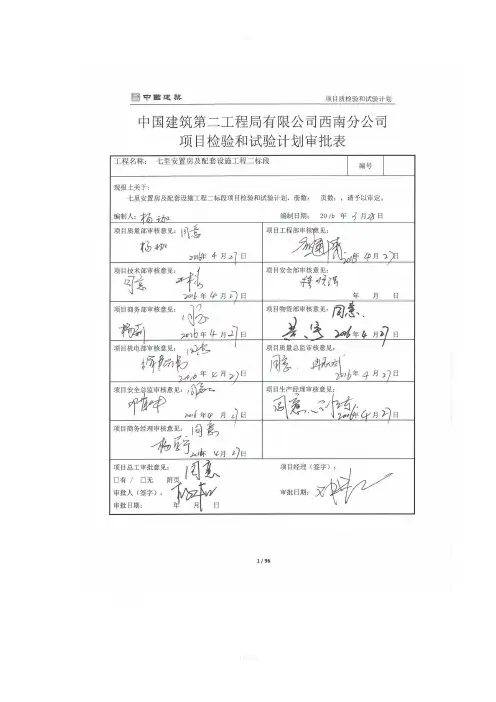 中國建築 项目质检验和试验计划
中国建筑第二工程局有限公司西南分公司
项目检验和试验计划审批表
工程名称： 七里安置房及配套设施工程二标段 编号
现报上关于:
七里安置房及配套设施工程二标段项目检验和试验计划，册数： 页数：，请予以审定。
编制人： 编制日期： 2016 年 月 日
项目质量部审核意见：同意
2016 年 4 月 27 日
项目工程部审核意见：
2016 年 4 月 27 日
项目技术部审核意见：
同意
2016 年 4 月 27 日
项目安全部审核意见：
年 月 日
项目商务部审核意见：
2016 年 4 月 27 日
项目物资部审核意见：同意.
2016 年 4 月 27 日
项目机电部审核意见：
2016 年 4 月 27 日
项目质量总监审核意见：
同意
2016 年 4 月 27 日
项目安全总监审核意见：同意
2016 年 4 月 27 日
项目生产经理审核意见：
同意
2016 年 4 月 27 日
项目商务经理审核意见：同意
2016 年 4 月 27 日
项目总工审批意见： 同意 项目经理（签字）：
□有 / □无 附页
审批人（签字）： 审批日期：
审批日期： 年 月 日
1 / 96